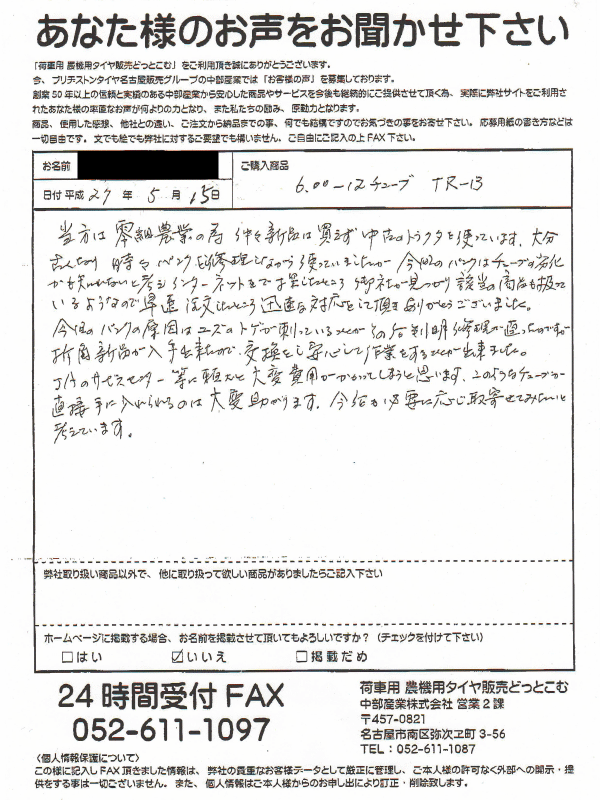 あなた様のお声をお聞かせ下さい
「荷車用 農機用タイヤ販売どっとこむ」をご利用頂き誠にありがとうございます。
今、ブリヂストンタイヤ名古屋販売グループの中部産業では「お客様の声」を募集しております。
創業50年以上の信頼と実績のある中部産業から安心した商品やサービスを今後も継続的にご提供させて頂く為、実際に弊社サイトをご利用さ
れたあなた様の率直なお声が何よりの力となり、また私たちの励み、原動力となります。
商品、使用した感想、他社との違い、ご注文から納品までの事、何でも結構ですのでお気づきの事をお寄せ下さい。応募用紙の書き方などは
一切自由です。文でも絵でも弊社に対するご要望でも構いません。ご自由にご記入の上FAX下さい。
お名前
ご購入商品
日付 平成 27 年 5 月 15日
6.00-12 チューブ TR-13
当方は零細農業の為 仲々新品は買えず 中古のトラクタを使っています。大分
古くなり 時々パンクを修理しながら使っていましたが 今回のパンクはチューブの劣化
かも知れないと考えインターネットで探したところ 御社が見つかり 該当の商品も扱って
いるようなので早速注文したところ 迅速な対応をして頂きありがとうございました。
今回のパンクの原因はユズのトゲが刺っていることがその后判明 修理で直ったのですが
折角新品が入手出来たので、交換をし安心して作業をすることが出来ました。
JAのサービスセンター等に頼んだら大変費用がかかってしまうと思います、このようなチューブが
直接手に入れられるのは大変助かります。今后も必要に応じ取寄せてみたいと
考えています。
弊社取り扱い商品以外で、他に取り扱って欲しい商品がありましたらご記入下さい
ホームページに掲載する場合、お名前を掲載させて頂いてもよろしいですか？（チェックを付けて下さい）
□はい ☑いいえ □掲載だめ
24時間受付 FAX
052-611-1097
荷車用 農機用タイヤ販売どっとこむ
中部産業株式会社 営業2課
〒457-0821
名古屋市南区弥次ヱ町 3-56
TEL：052-611-1087
〈個人情報保護について〉
この様に記入しFAX頂きました情報は、弊社の貴重なお客様データとして厳正に管理し、ご本人様の許可なく外部への開示・提
供をする事は一切ございません。また、個人情報はご本人様からのお申し出により訂正・削除致します。